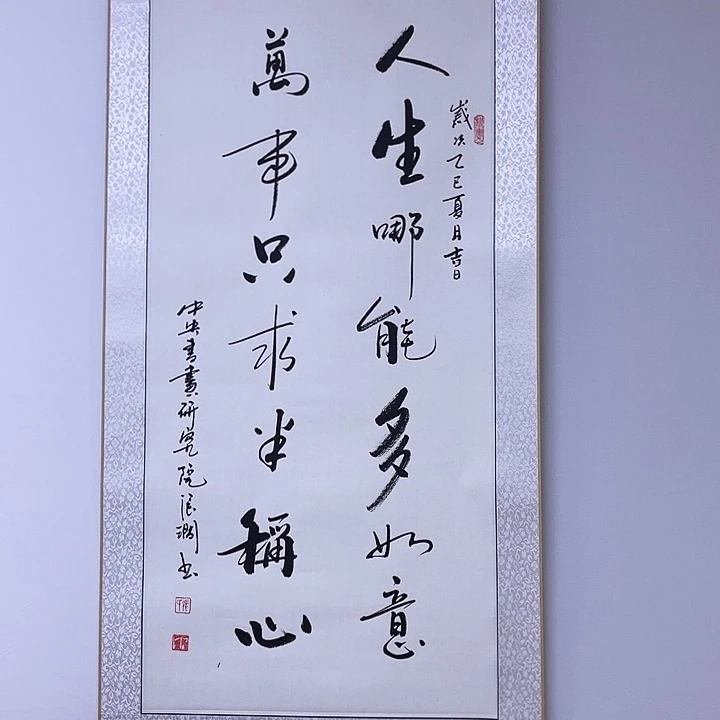 歲次乙巳夏月吉日
人生哪能多如意
萬事只求半稱心
中央書畫研究院
書